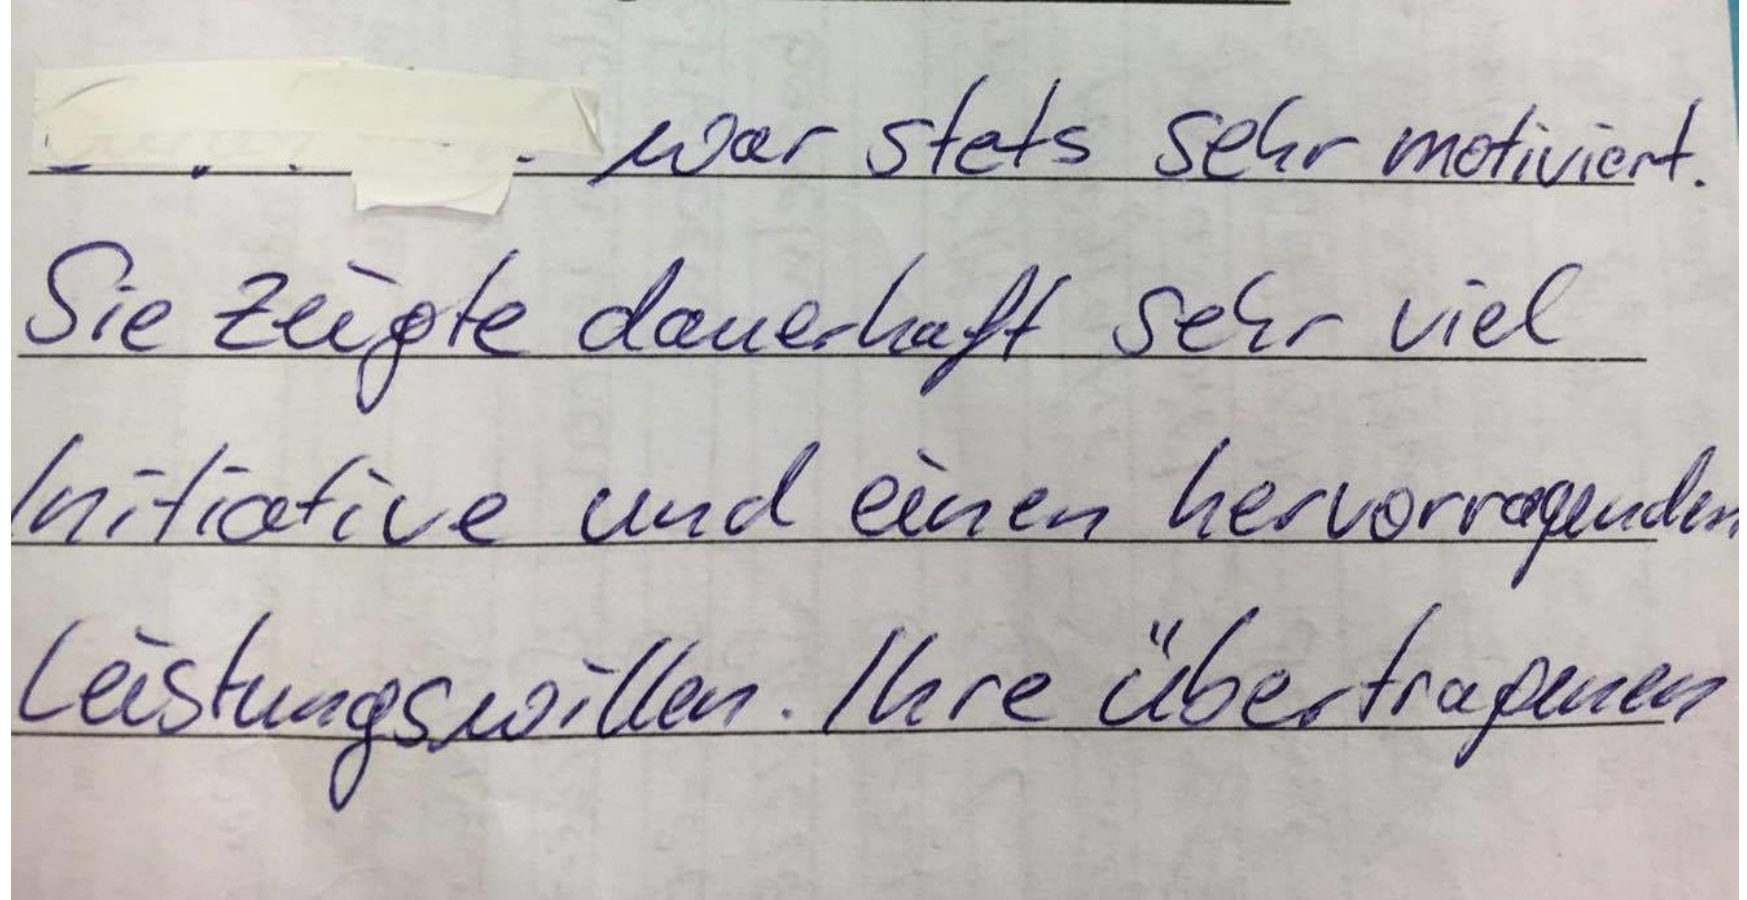 war stets sehr motiviert.
Sie zeigte dauerhaft sehr viel
Initiative und einen hervorragenden
Leistungswillen. Ihre übertragenen